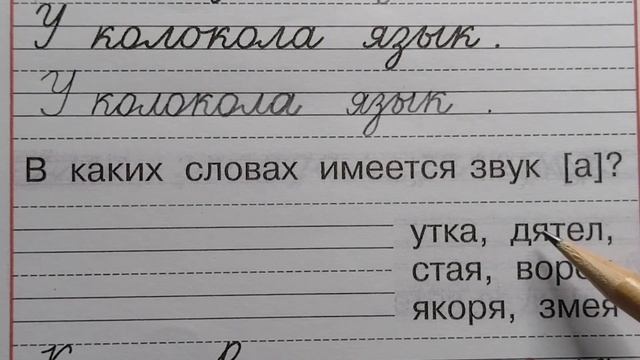 У колокола язык.
У колокола язык.
В каких словах имеется звук [а]?
утка, дятел,
стая,
якоря, змея